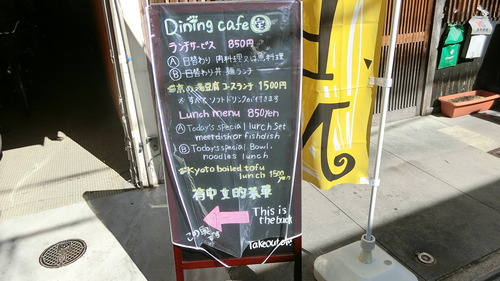 Dining cafe
ランチサービス 850円
Ⓐ 日替わり 肉料理又は魚料理
Ⓑ 日替わり丼 麺ランチ
京の湯豆腐 コースランチ 1500円
※ すべてソフトドリンク付いてきます
Lunch menu 850yen
Ⓐ Today's special lunch set
meet dish or fish dish
Ⓑ Today's special Bowl,
noodles lunch
Kyoto boiled tofu
lunch 1500 yen
有中文的菜单
この奥です
This is
the back
Takeout OK!